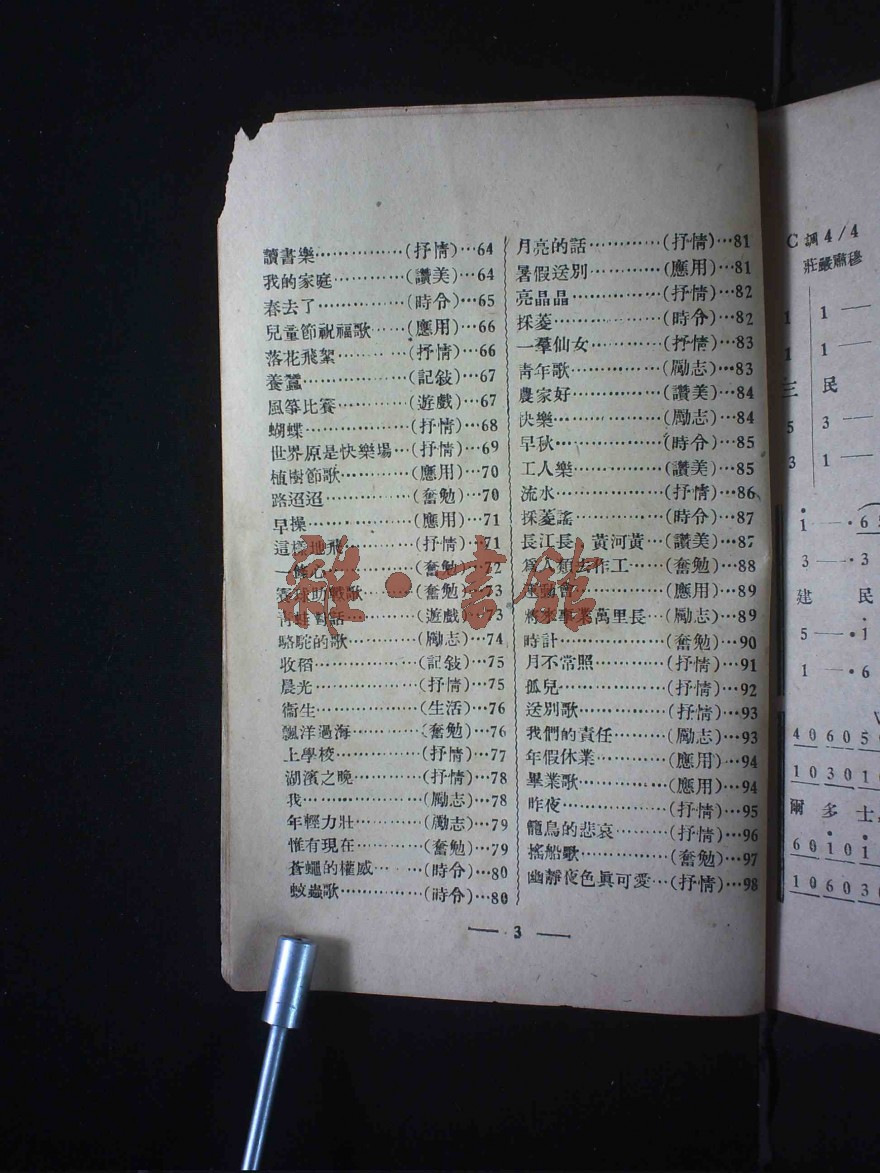 讀書樂……………(抒情)…64
我的家庭…………(讚美)…64
春去了……………(時令)…65
兒童節祝福歌……(應用)…66
落花飛絮…………(抒情)…66
養蠶………………(記敍)…67
風箏比賽…………(遊戲)…67
蝴蝶………………(抒情)…68
世界原是快樂場…(抒情)…69
植樹節歌…………(應用)…70
路迢迢……………(奮勉)…70
早操………………(應用)…71
這樣地飛…………(抒情)…71
一條心……………(奮勉)…72
寰球助戰歌………(奮勉)…73
青蛙對話…………(遊戲)…73
駱駝的歌…………(勵志)…74
收稻………………(記敍)…75
晨光………………(抒情)…75
衞生………………(生活)…76
飄洋過海…………(奮勉)…76
上學校……………(抒情)…77
湖濱之晚…………(抒情)…78
我…………………(勵志)…78
年輕力壯…………(勵志)…79
惟有現在…………(奮勉)…79
蒼蠅的權威………(時令)…80
蚊蟲歌……………(時令)…80
月亮的話…………(抒情)…81
暑假送別…………(應用)…81
亮晶晶……………(抒情)…82
採菱………………(時令)…82
一羣仙女…………(抒情)…83
青年歌……………(勵志)…83
農家好……………(讚美)…84
快樂………………(勵志)…84
早秋………………(時令)…85
工人樂……………(讚美)…85
流水………………(抒情)…86
採菱謠……………(時令)…87
長江長 黃河黃…(讚美)…87
爲人類去作工……(奮勉)…88
運動會……………(應用)…89
將來事業萬里長…(勵志)…89
時計………………(奮勉)…90
月不常照…………(抒情)…91
孤兒………………(抒情)…92
送別歌……………(抒情)…93
我們的責任………(勵志)…93
年假休業…………(應用)…94
畢業歌……………(應用)…94
昨夜………………(抒情)…95
籠鳥的悲哀………(抒情)…96
搖船歌……………(奮勉)…97
幽靜夜色眞可愛…(抒情)…98
— 3 —
雜·書館
C調4/4
莊嚴肅穆
1 1 —
1 1 —
三 民
5 3 —
3 1 —
1 — · 6 5
3 — · 3
建 民
5 — · 1
1 — · 6
4 0 6 0 5 0
1 0 3 0 1 0
爾 多 士
6 0 1 0 1
1 0 6 0 3 0